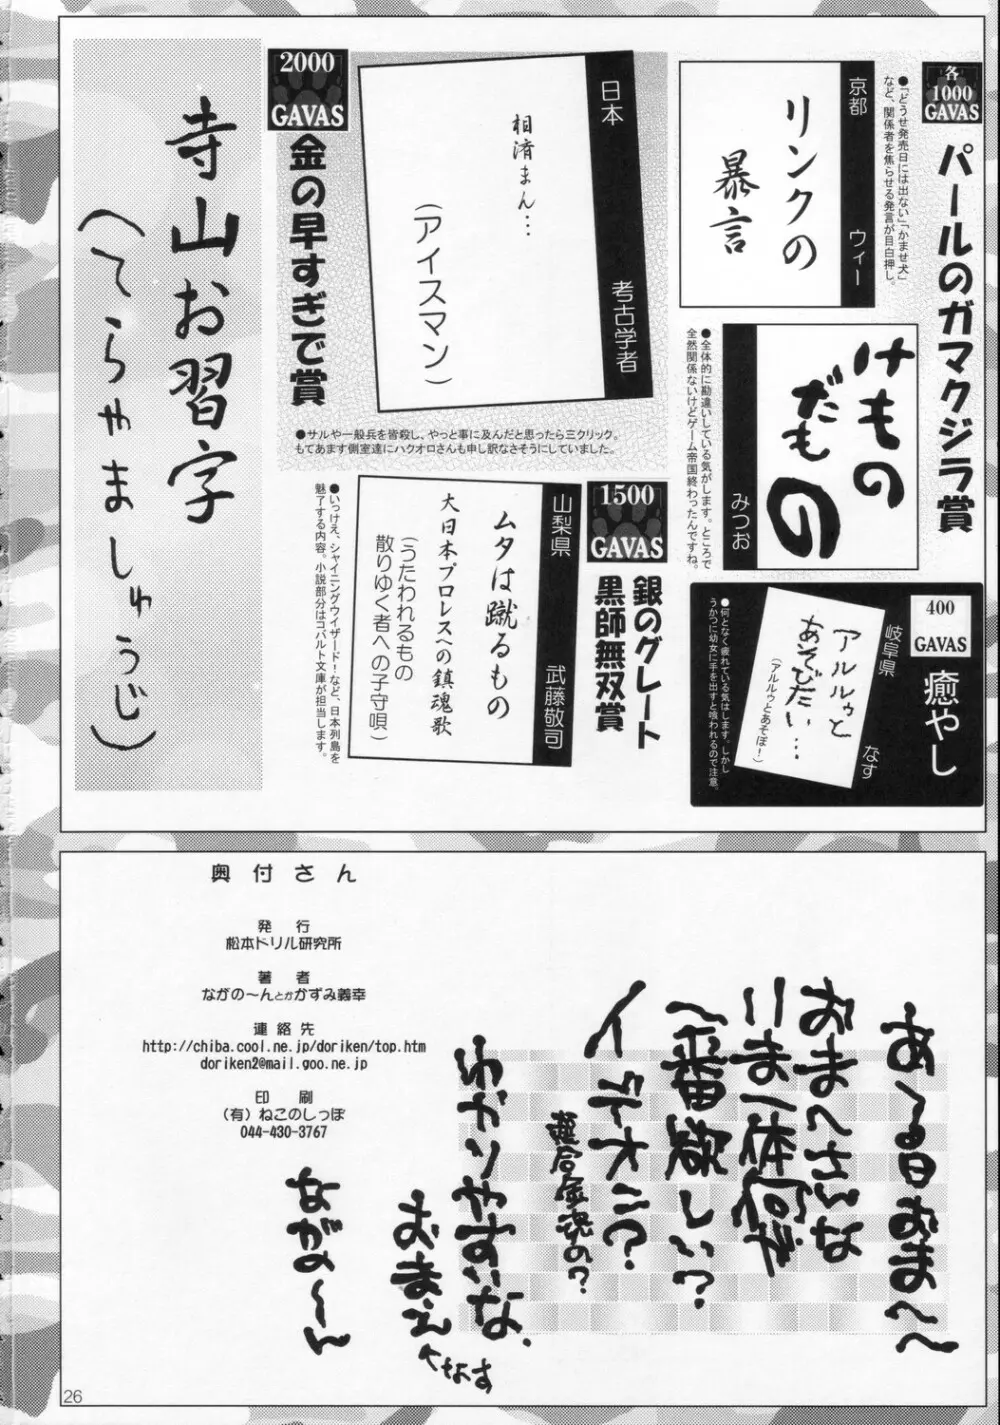 各
1000
GAVAS
パールのガマクジラ賞
京都　ウィー
リンクの
暴言
●「どうせ発売日には出ない」「かませ犬」
など、関係者を焦らせる発言が目白押し。
みつお
けもの
だもの
●全体的に勘違いしている気がします。ところで
全然関係ないけどゲーム帝国終わったんですね。
400
GAVAS
癒やし
岐阜県　なす
アルルゥと
あそびたい…
(アルルゥとあそぼ！)
●何となく疲れている気はします。しかし
うかつに幼女に手を出すと喰われるので注意。
2000
GAVAS
金の早すぎで賞
日本　考古学者
相済まん…
(アイスマン)
●サルや一般兵を皆殺し、やっと事に及んだと思ったら三クリック。
もてあます側室達にハクオロさんも申し訳なさそうにしていました。
1500
GAVAS
銀のグレート
黒師無双賞
山梨県　武藤敬司
ムタは蹴るもの
大日本プロレスへの鎮魂歌
(うたわれるもの
散りゆく者への子守唄)
●いっけえ、シャイニングウィザード！など、日本列島を
魅了する内容。小説部分はコバルト文庫が担当します。
寺山お習字
(てらやましゅうじ)
奥付さん
発　行
松本ドリル研究所
著　者
ながの〜んとかかずみ義幸
連絡先
http://chiba.cool.ne.jp/doriken/top.htm
doriken2@mail.goo.ne.jp
印　刷
(有)ねこのしっぽ
044-430-3767
あ〜る日おま〜〜
おまへさんな
いま一体何が
一番欲しい?
イデオン?
超合金魂の?
わかりやすいな、
おまえ
くなす
ながの〜ん
26